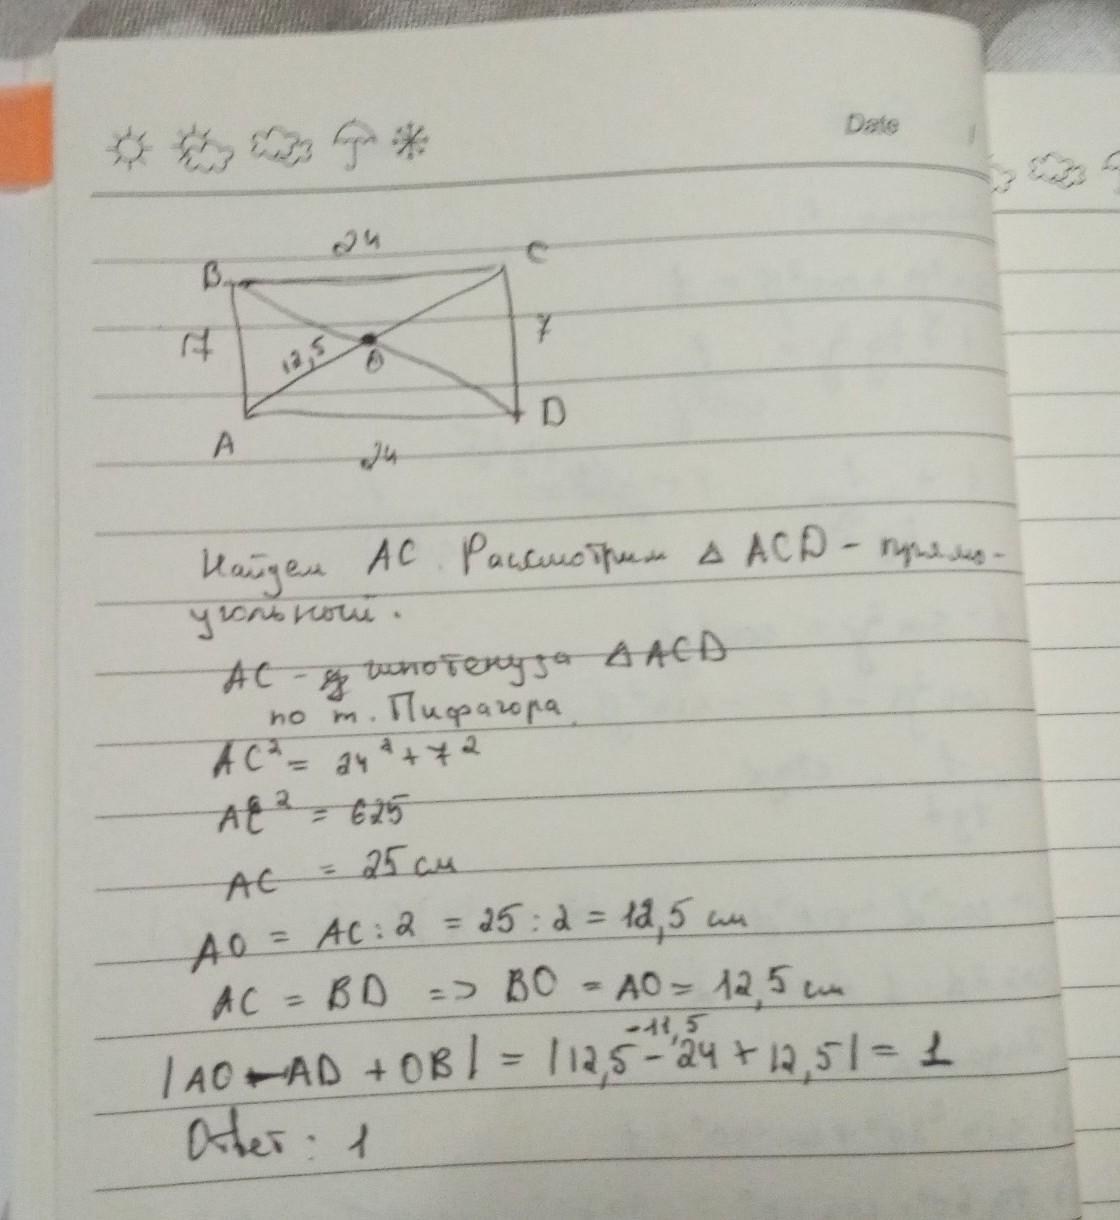 Date
24
B
C
17
7
12,5
O
A
D
24
Найдем AC. Рассмотрим △ ACD - прямо-
угольный.
AC - гипотенуза △ACD
по т. Пифагора
AC² = 24² + 7²
AC² = 625
AC = 25 см
AO = AC : 2 = 25 : 2 = 12,5 см
AC = BD => BO = AO = 12,5 см
-11,5
|AO - AD + OB| = |12,5 - 24 + 12,5| = 1
Ответ: 1